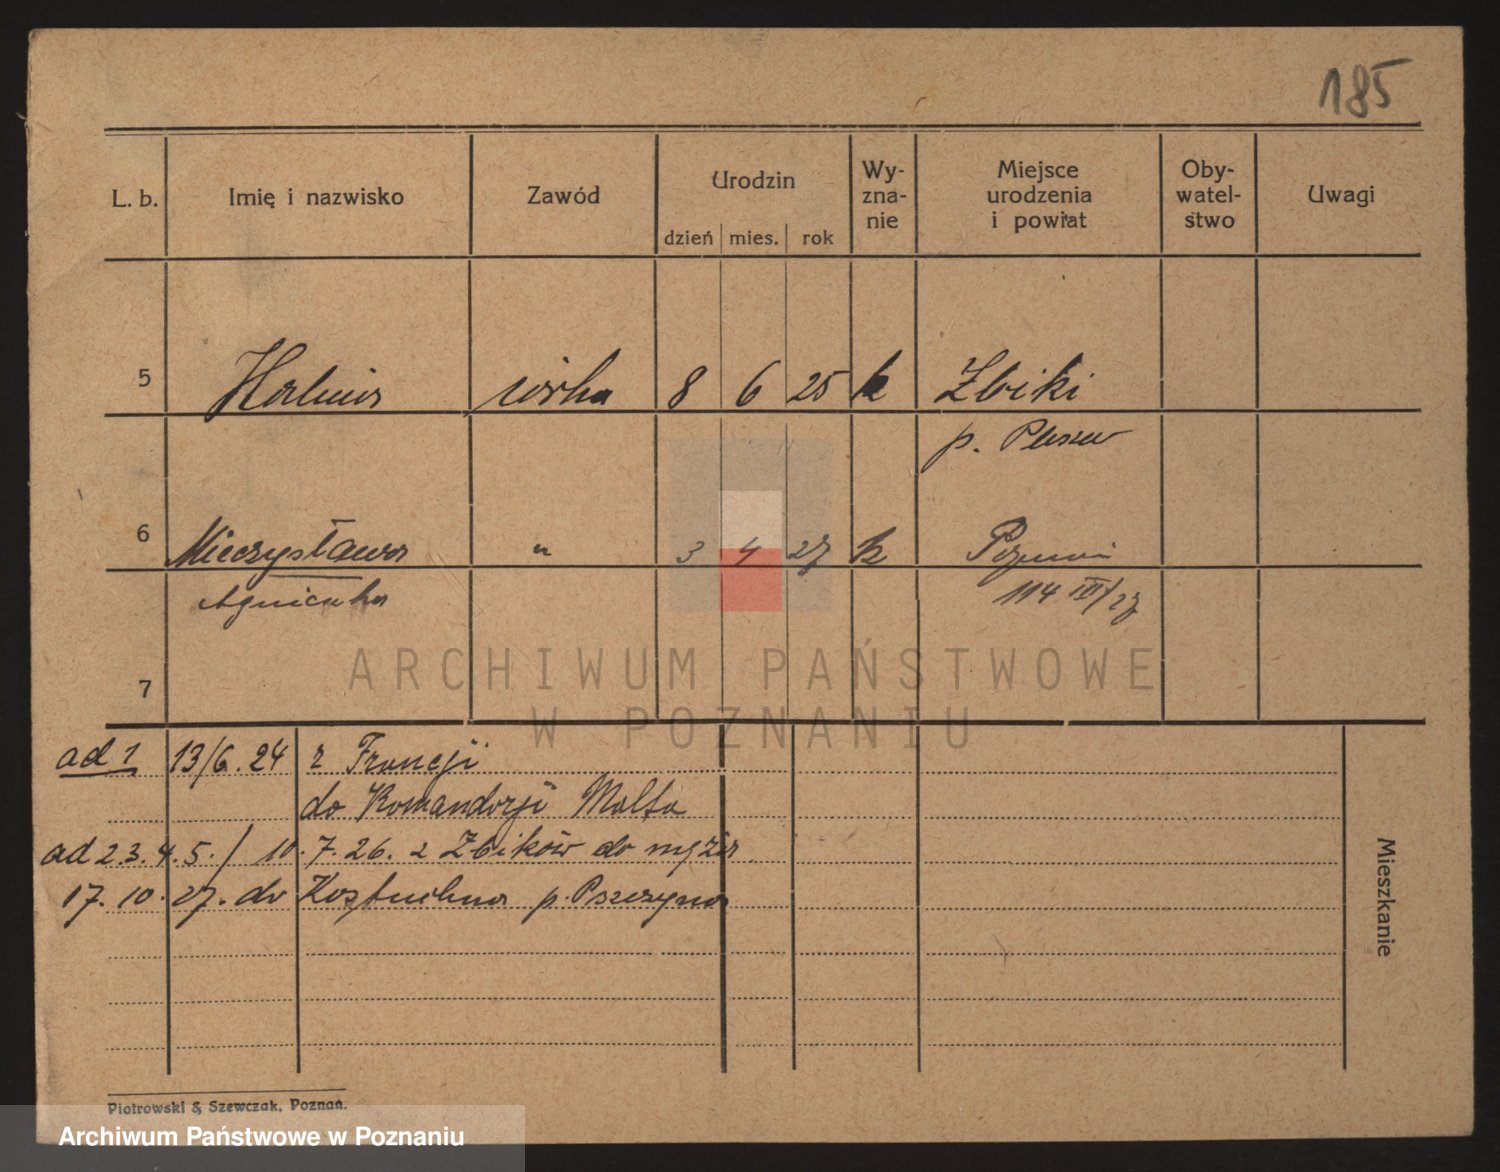 185
L. b. Imię i nazwisko Zawód Urodzin dzień mies. rok Wy-zna-nie Miejsce urodzenia i powiat Oby-watel-stwo Uwagi
5 Halina córka 8 6 25 k Żbiki
p. Pleszew
6 Mieczysława " 3 4 27 k Poznań
Agnieszka 114 III/27
7
ARCHIWUM PAŃSTWOWE
W POZNANIU
ad 1 13/6. 24 z Francji
do Komandorji Malta
ad 2 3. 4. 5. / 10. 7. 26. z Żbików do męża
17. 10. 27. do Kostuchna p. Pszczyna
Mieszkanie
Piotrowski & Szewczak, Poznań.
Archiwum Państwowe w Poznaniu